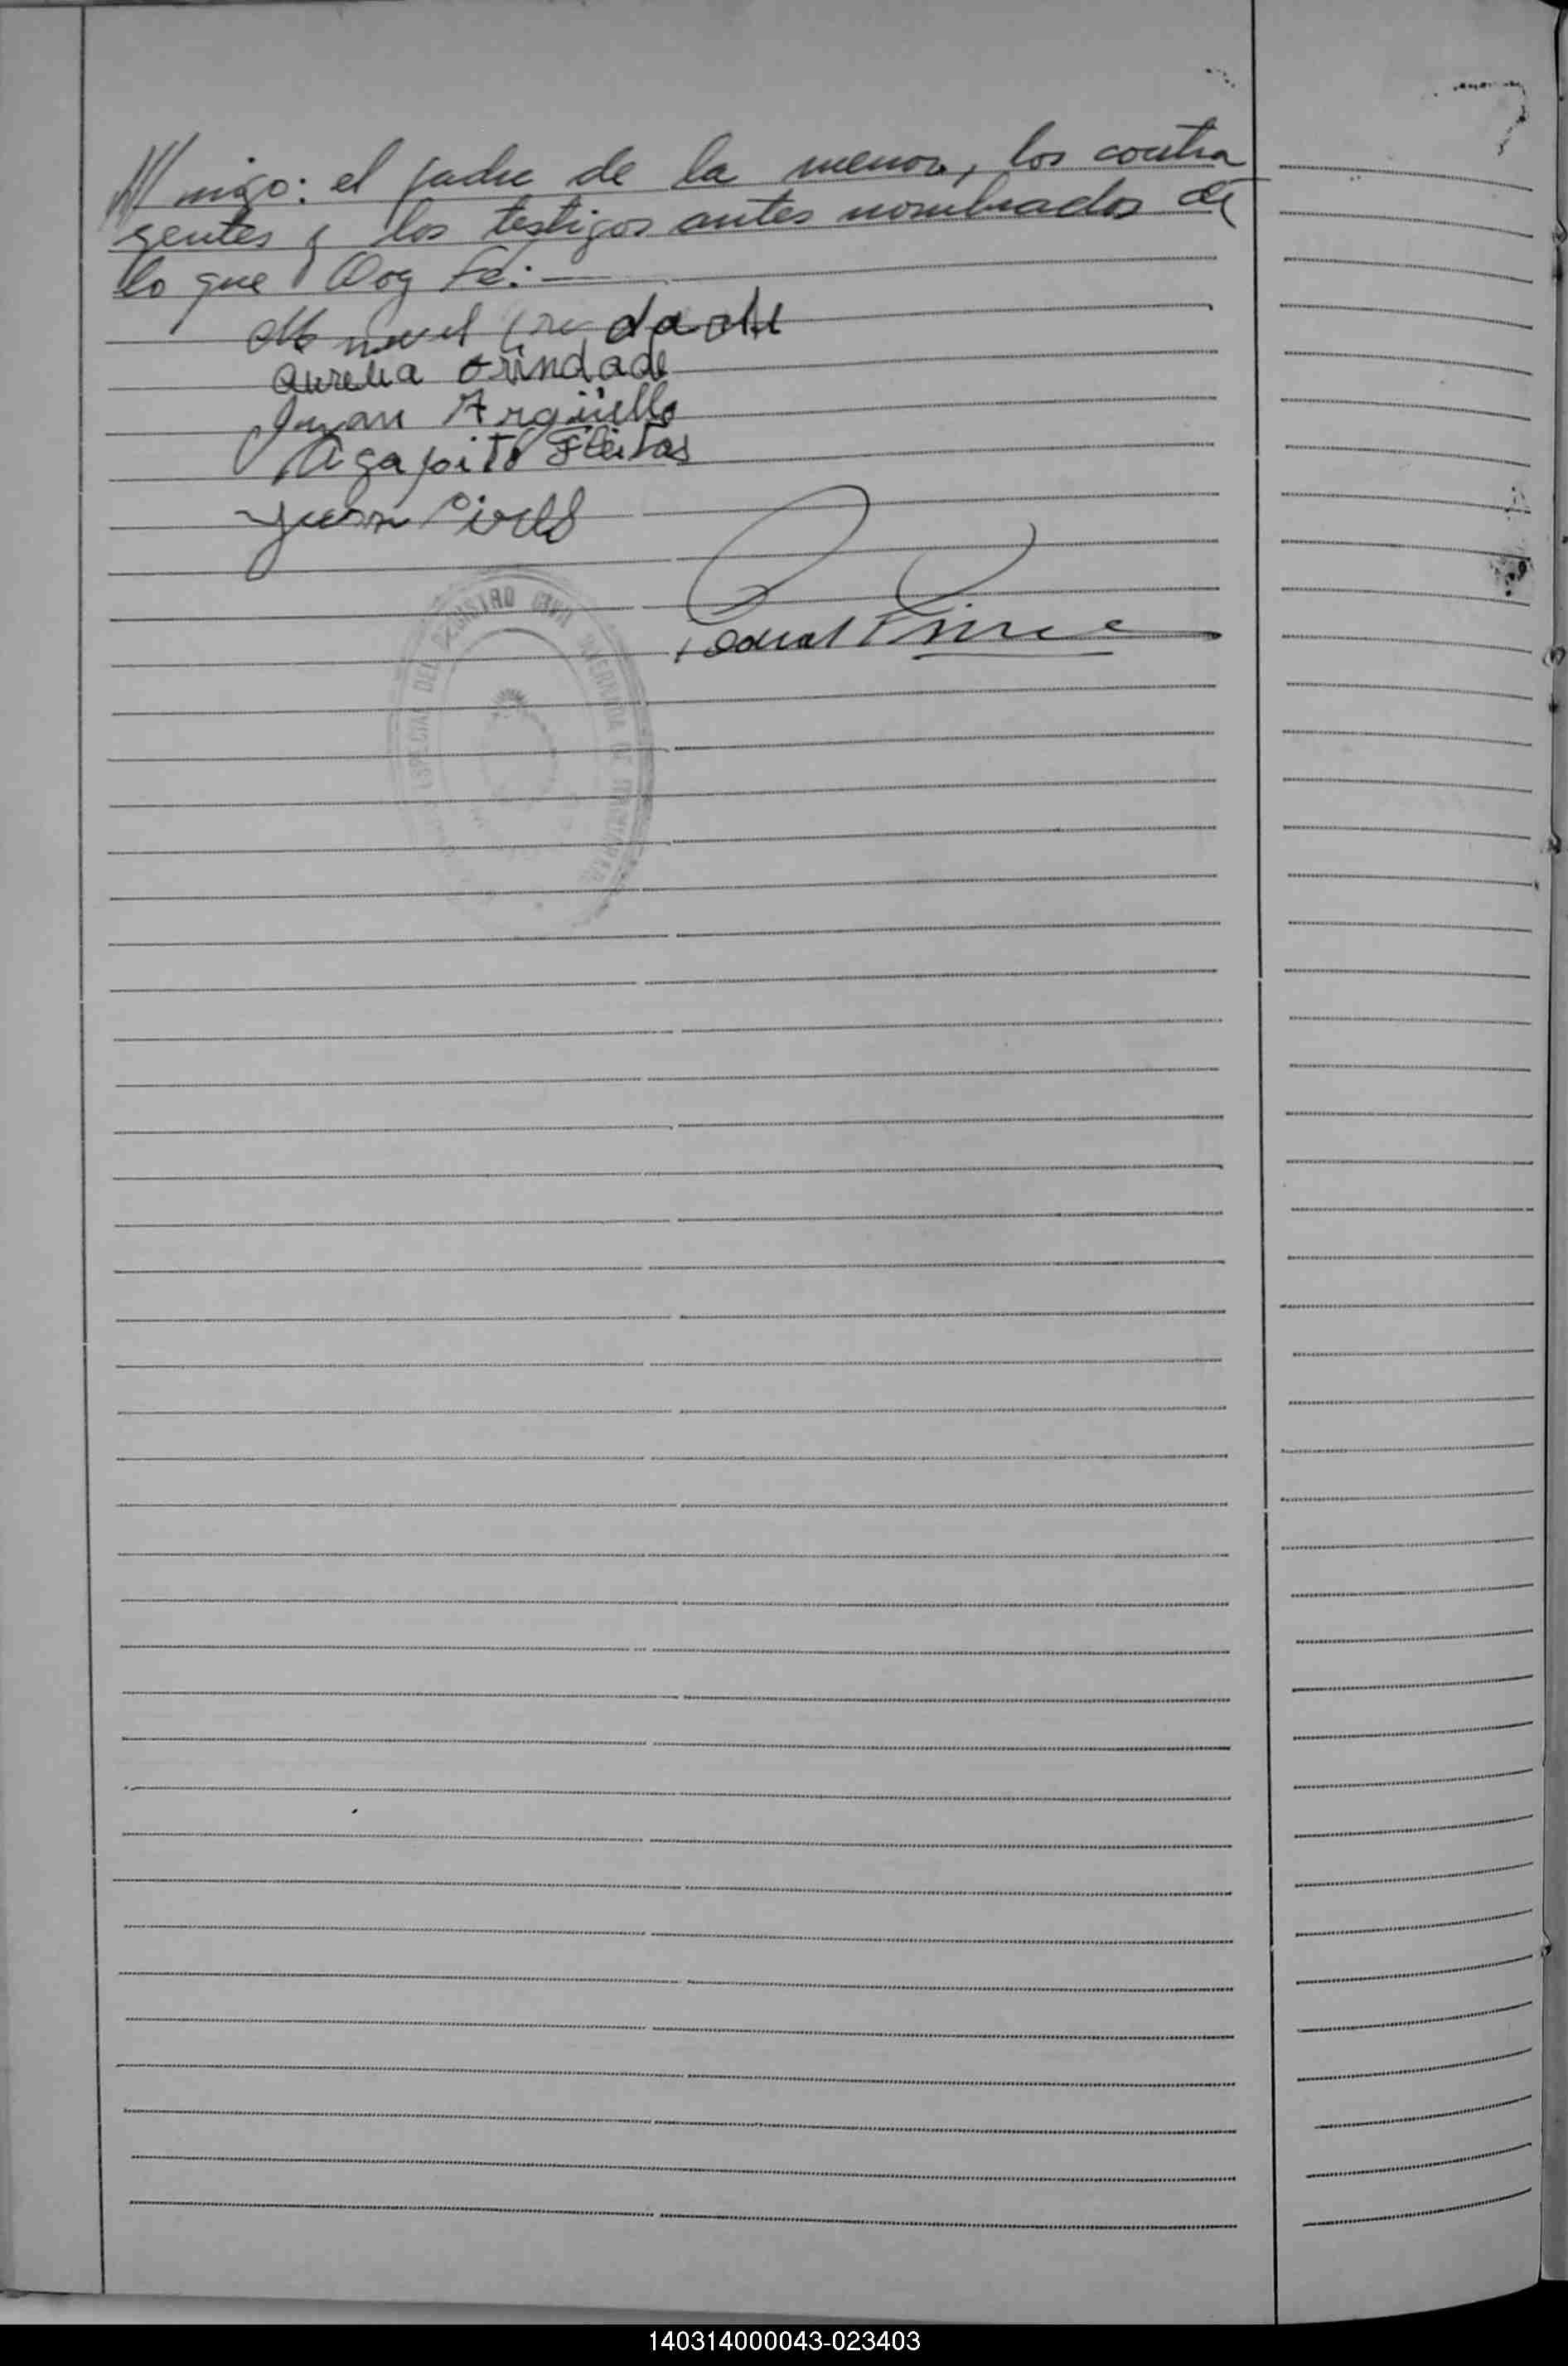 ///migo: el padre de la menor, los contra
gentes y los testigos antes nombrados de
lo que Doy Fé:—
Manuel
Aurelia Trindade
Juan Argüello
Agapito Fleitas
Juan Pires
REGISTRO CIVIL
ESPECIAL DEL
140314000043-023403